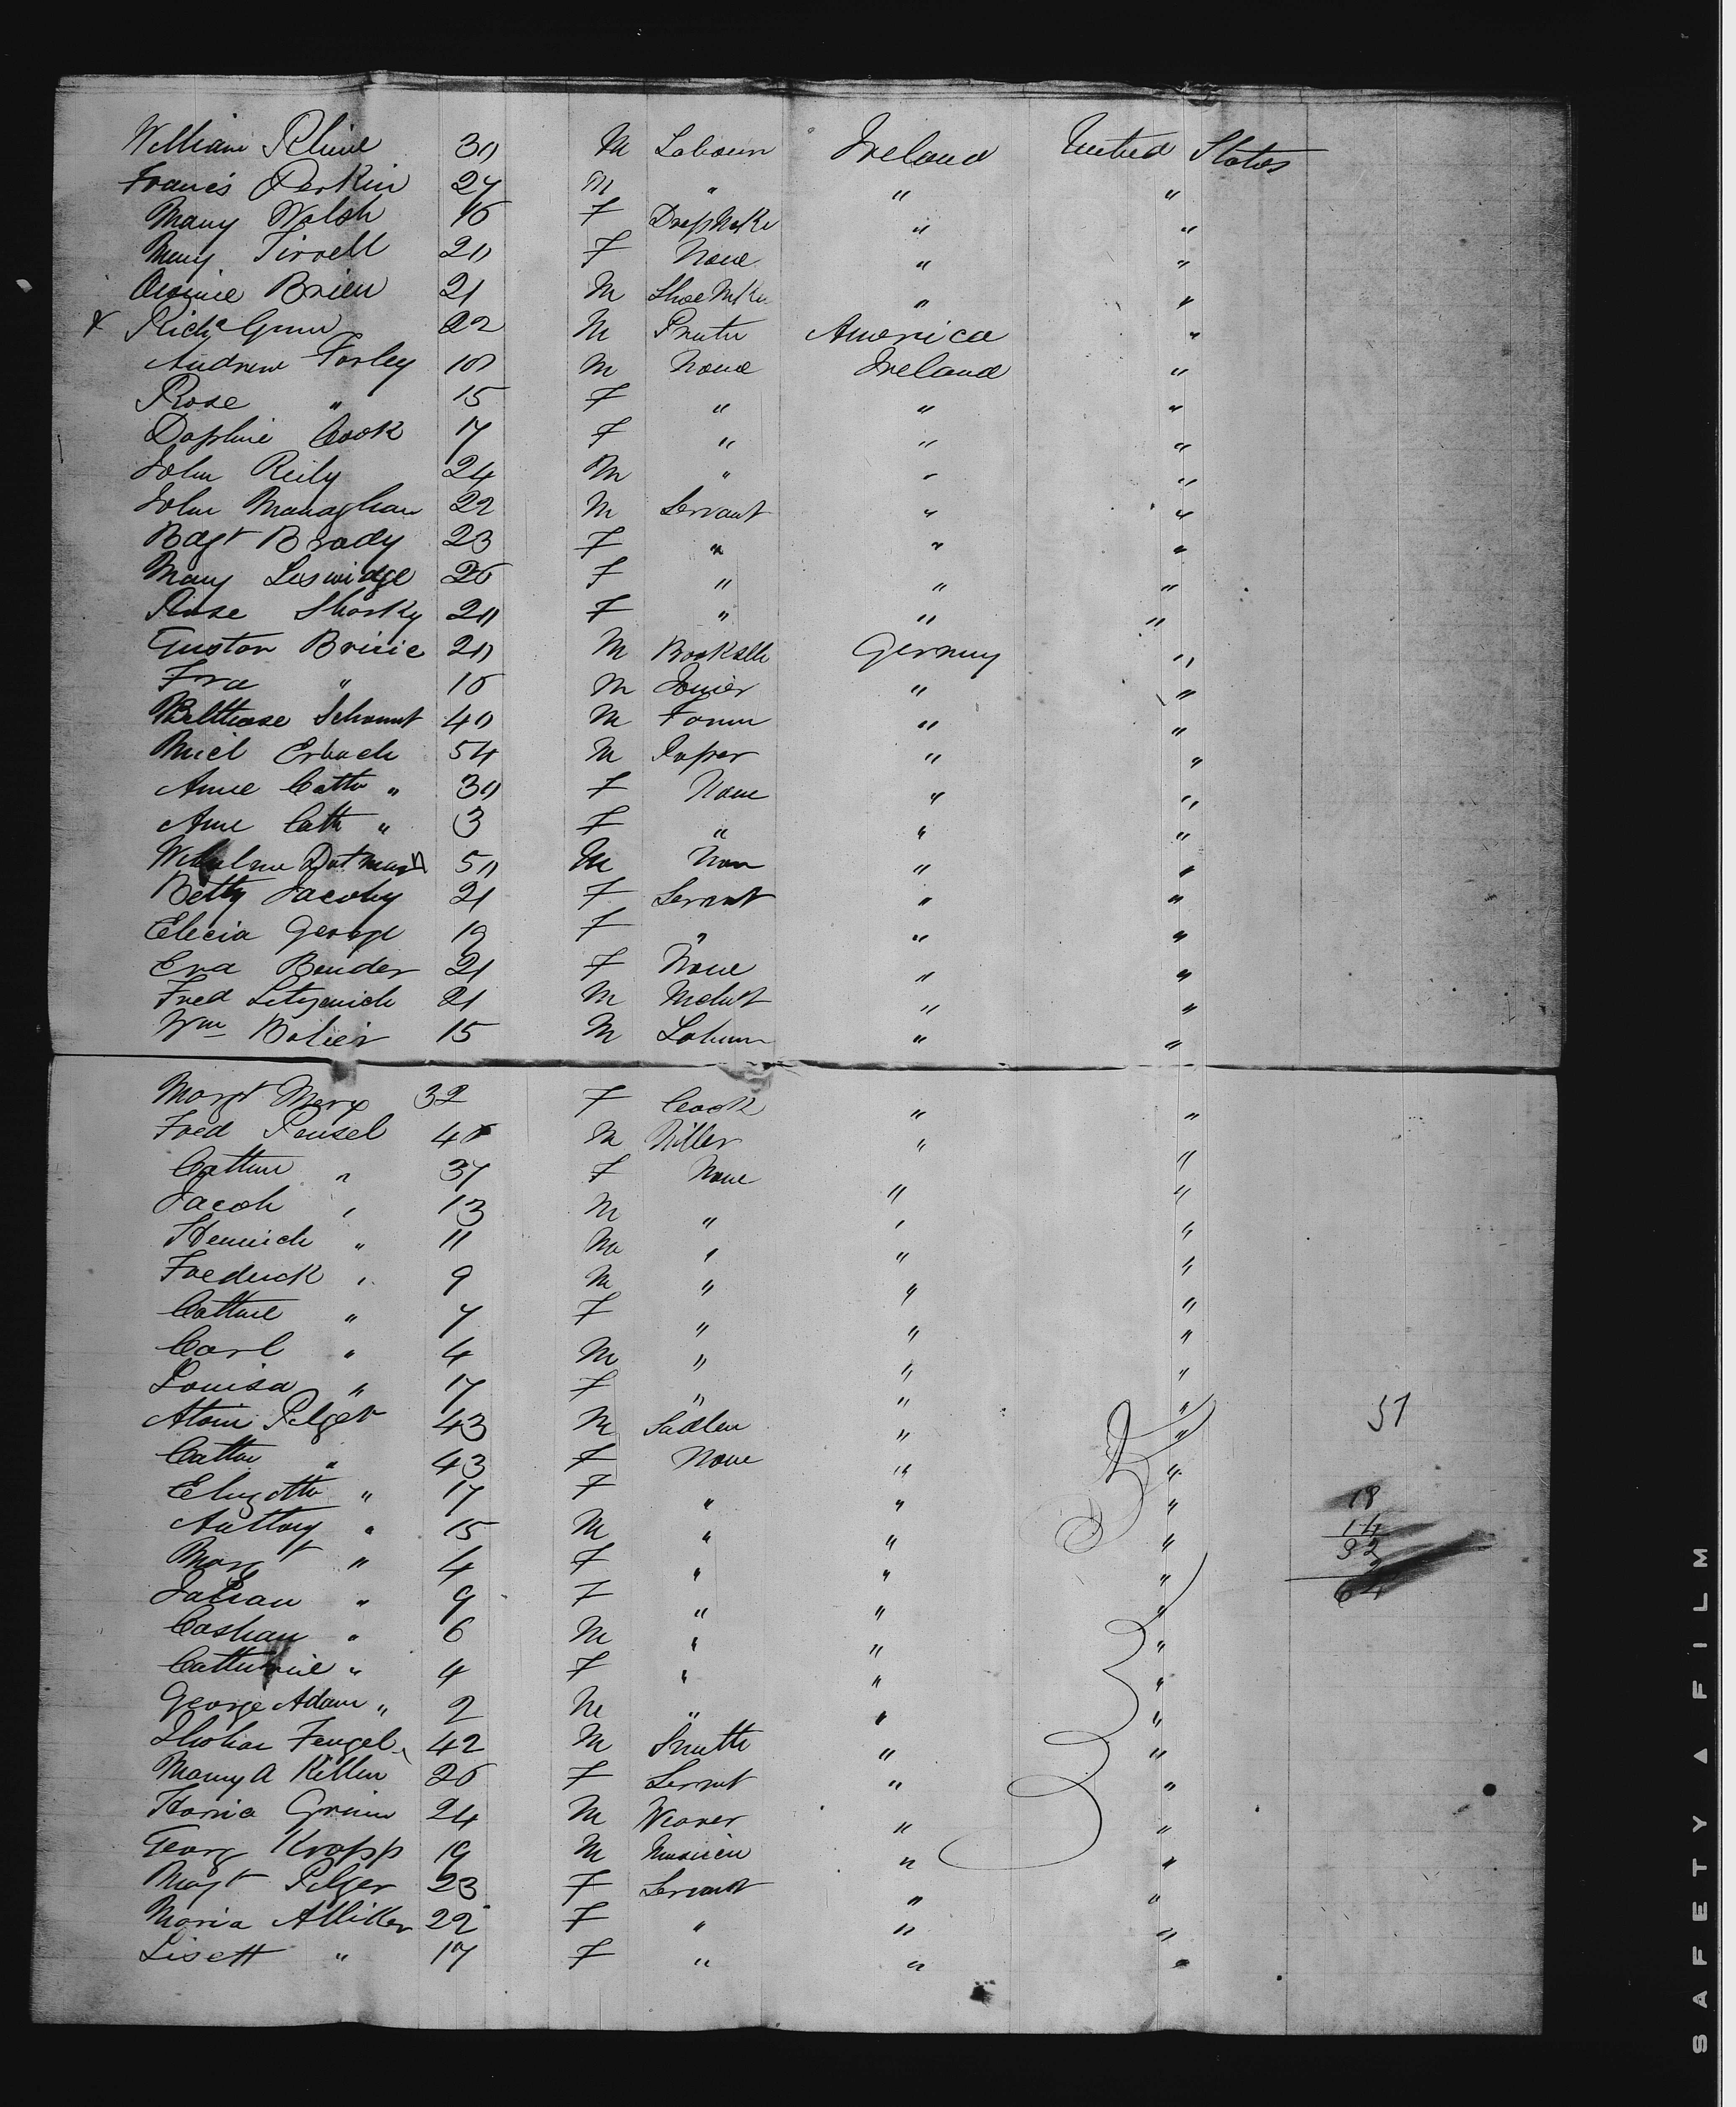 William Rhine 30 M Labourr Ireland United States
Francis Parkin 27 M " " "
Mary Walsh 16 F DressMaker " "
Mary Tirrell 20 F None " "
Brien 21 M ShoeMkr " "
x Richd Gunn 22 M Prnter America "
Andrew Farley 10 M None Ireland "
Rose " 15 F " " "
Daphne Cook 17 F " " "
John Reily 24 M " " "
John Managhan 22 M Servant " "
Bdgt Brady 23 F " " "
Mary Leswidge 26 F " " "
Rose Sharky 20 F " " "
Gustav Brisie 20 M Germny "
Fra " 16 M Joiner " "
Belthase Schammt 40 M Farmr " "
Micl Erbach 54 M " "
Anne Cathr " 30 F None " "
Anne Cath " 3 F " " "
Datmann 50 M Non " "
Betty Jacoby 21 F Servnt " "
Elecia George 19 F " " "
Eva Bender 21 F None " "
Fred 21 M " "
Wm Bolier 15 M Labourr " "
Margt Merx 32 F Cook " "
Fred Pensel 46 M Miller " "
Cathrn " 37 F None " "
Jacob " 13 M " " "
Henrich " 11 M " " "
Frederick " 9 M " " "
Cathrne " 7 F " " "
Carl " 4 M " " "
Louisa " 17 F " " "
Pilger 43 M Sadler " " 51
Cathr " 43 F None " "
" 17 F " " " 18
Anthony " 15 M " " " 14
Margt " 4 F " " " 32
" 9 F " " " 64
Cashan " 6 M " " "
Catherine " 4 F " " "
George Adam " 2 M " " "
Fengel 42 M Smith " "
Mary A Killen 26 F Servnt " "
Grimm 24 M Weaver " "
Georg Kropp 19 M Musicin " "
Margt Pilger 23 F Servant " "
Maria AMiller 22 F " " "
Lisett " 17 F " " "
SAFETY ▲ FILM